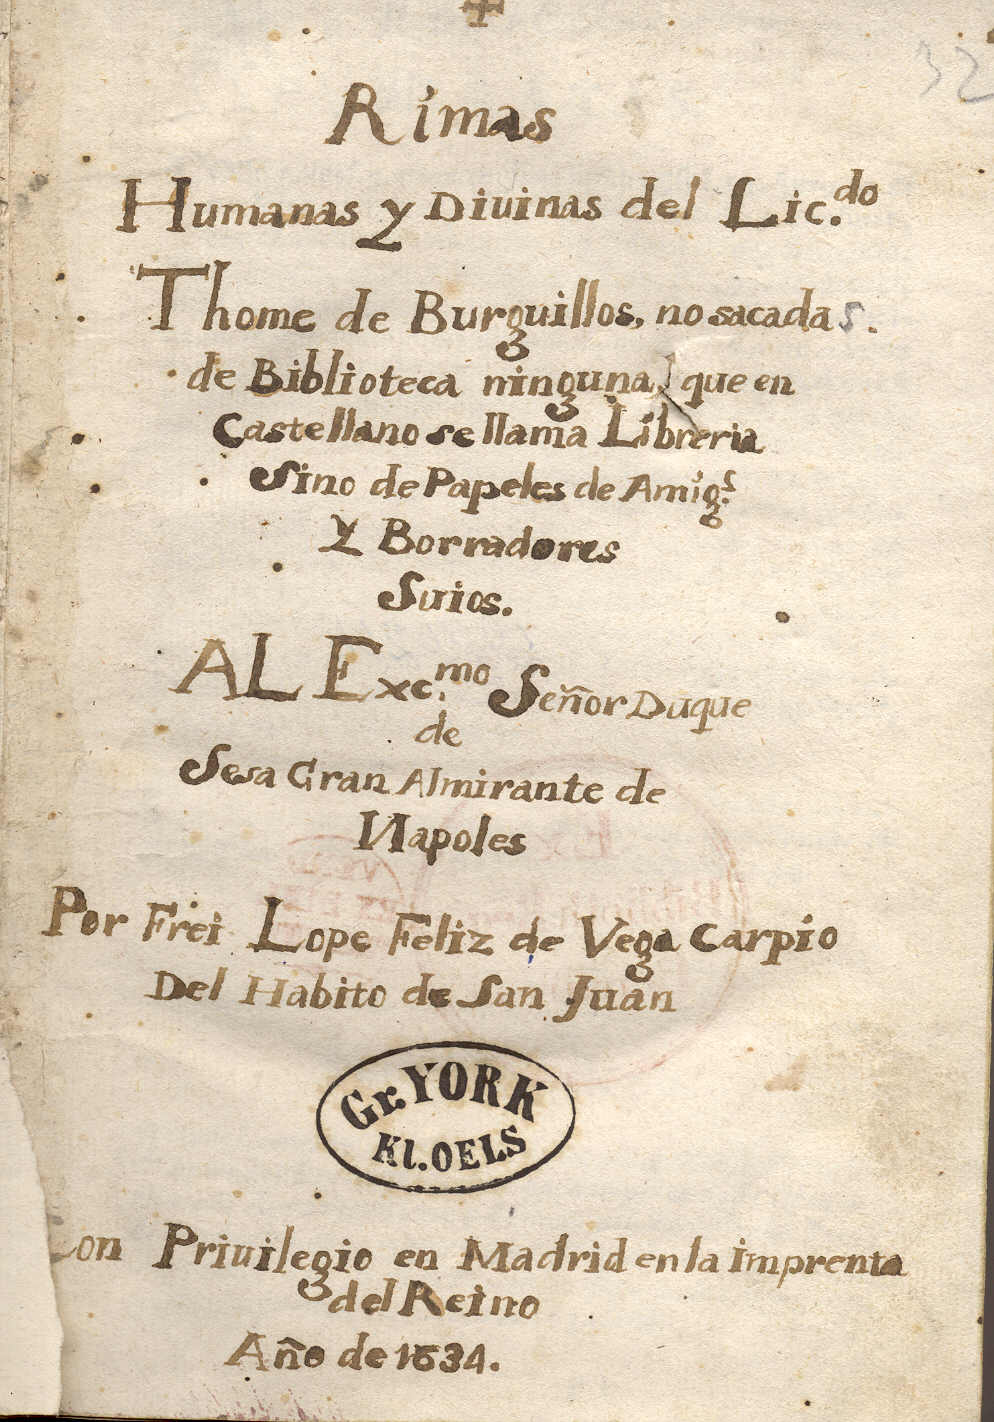 32
Rimas
Humanas y Diuinas del Lic.do
Thome de Burguillos, no sacadas.
de Biblioteca ninguna, que en
Castellano se llama Libreria
Sino de Papeles de Amig.s
y Borradores
Suios.
AL Exc.mo Señor Duque
de
Sesa Gran Almirante de
Napoles
Por Frei Lope Feliz de Vega Carpio
Del Habito de San Juan
Gr. YORK
Kl. OELS
Con Priuilegio en Madrid en la imprenta
del Reino
Año de 1634.